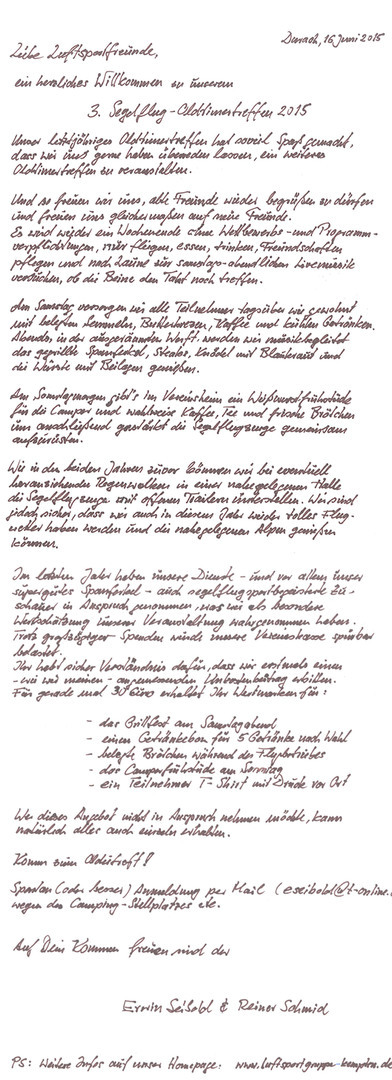 Durach, 16. Juni 2015
Liebe Luftsportfreunde,
ein herzliches Willkommen zu unserem
3. Segelflug-Oldtimertreffen 2015
Unser letztjähriges Oldtimertreffen hat soviel Spaß gemacht,
dass wir uns gerne haben überreden lassen, ein weiteres
Oldtimertreffen zu veranstalten.
Und so freuen wir uns, alte Freunde wieder begrüßen zu dürfen
und freuen uns gleichermaßen auf neue Freunde.
Es wird wieder ein Wochenende ohne Wettbewerbs- und Programm-
verpflichtungen, nur fliegen, essen, trinken, Freundschaften
pflegen und nach Laune zur samstag-abendlichen Livemusik
versuchen, ob die Beine den Takt noch treffen.
Am Samstag versorgen wir alle Teilnehmer tagsüber wie gewohnt
mit belegten Semmeln, Butterbrezen, Kaffee und kühlen Getränken.
Abends, in der ausgeräumten Werft, werden wir musikbegleitet
das gegrillte Spanferkel, Steaks, Knödel mit Blaukraut und
die Würste mit Beilagen genießen.
Am Sonntagmorgen gibt's im Vereinsheim ein Weißwurstfrühstück
für die Camper und wahlweise Kaffee, Tee und frische Brötchen
um anschließend gestärkt die Segelflugzeuge gemeinsam
aufzurüsten.
Wie in den beiden Jahren zuvor können wir bei eventuell
heranziehenden Regenwolken in einer nahegelegenen Halle
die Segelflugzeuge mit offenen Trailern unterstellen. Wir sind
jedoch sicher, dass wir auch in diesem Jahr wieder tolles Flug-
wetter haben werden und die nahegelegenen Alpen genießen
können.
Im letzten Jahr haben unsere Dienste - und vor allem unser
supergutes Spanferkel - auch segelflugsportbegeisterte Zu-
schauer in Anspruch genommen, was wir als besondere
Wertschätzung unserer Veranstaltung wahrgenommen haben.
Trotz großzügiger Spenden wurde unsere Vereinskasse spürbar
belastet.
Ihr habt sicher Verständnis dafür, dass wir erstmals einen
- wie wir meinen - angemessenen Unkostenbeitrag erbitten.
Für gerade mal 30 Euro erhaltet Ihr Wertmarken für:
- das Grillfest am Samstagabend
- einen Getränkebon für 5 Getränke nach Wahl
- belegte Brötchen während des Flugbetriebes
- das Camperfrühstück am Sonntag
- ein Teilnehmer T-Shirt mit Druck vor Ort
Wer dieses Angebot nicht in Anspruch nehmen möchte, kann
natürlich alles auch einzeln erhalten.
Komm zum Olditreff!
(oder besser) Anmeldung per Mail (eseibold@t-online.
wegen des Camping-Stellplatzes etc.
Auf Dein Kommen freuen sind der
Erwin Seibold & Reiner Schmid
PS: Weitere Infos auf unser Homepage: www.luftsportgruppe-kempten.de